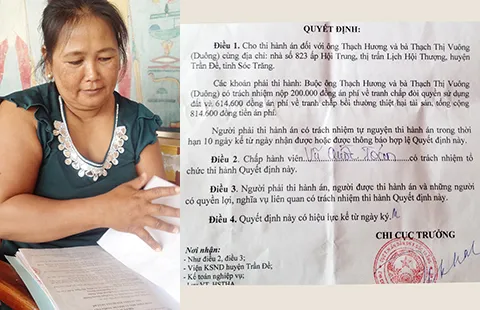 QUYẾT ĐỊNH:
Điều 1. Cho thi hành án đối với ông Thạch Hương và bà Thạch Thị Vuông
(Duông) cùng địa chỉ: nhà số 823 ấp Hội Trung, thị trấn Lịch Hội Thượng, huyện
Trần Đề, tỉnh Sóc Trăng.
Các khoản phải thi hành: Buộc ông Thạch Hương và bà Thạch Thị Vuông
(Duông) có trách nhiệm nộp 200.000 đồng án phí về tranh chấp đòi quyền sử dụng
đất và 614.600 đồng án phí về tranh chấp bồi thường thiệt hại tài sản, tổng cộng
814.600 đồng tiền án phí.
Người phải thi hành án có trách nhiệm tự nguyện thi hành án trong thời
hạn 10 ngày kể từ ngày nhận được hoặc được thông báo hợp lệ Quyết định này.
Điều 2. Chấp hành viên Vũ Quốc Toán có trách nhiệm tổ
chức thi hành Quyết định này.
Điều 3. Người phải thi hành án, người được thi hành án và những người
có quyền lợi, nghĩa vụ liên quan có trách nhiệm thi hành Quyết định này.
Điều 4. Quyết định này có hiệu lực kể từ ngày ký./.
CHI CỤC TRƯỞNG
Nơi nhận:
- Như điều 2, điều 3;
- Viện KSND huyện Trần Đề;
- Kế toán nghiệp vụ;
- Lưu VT, HSTHA